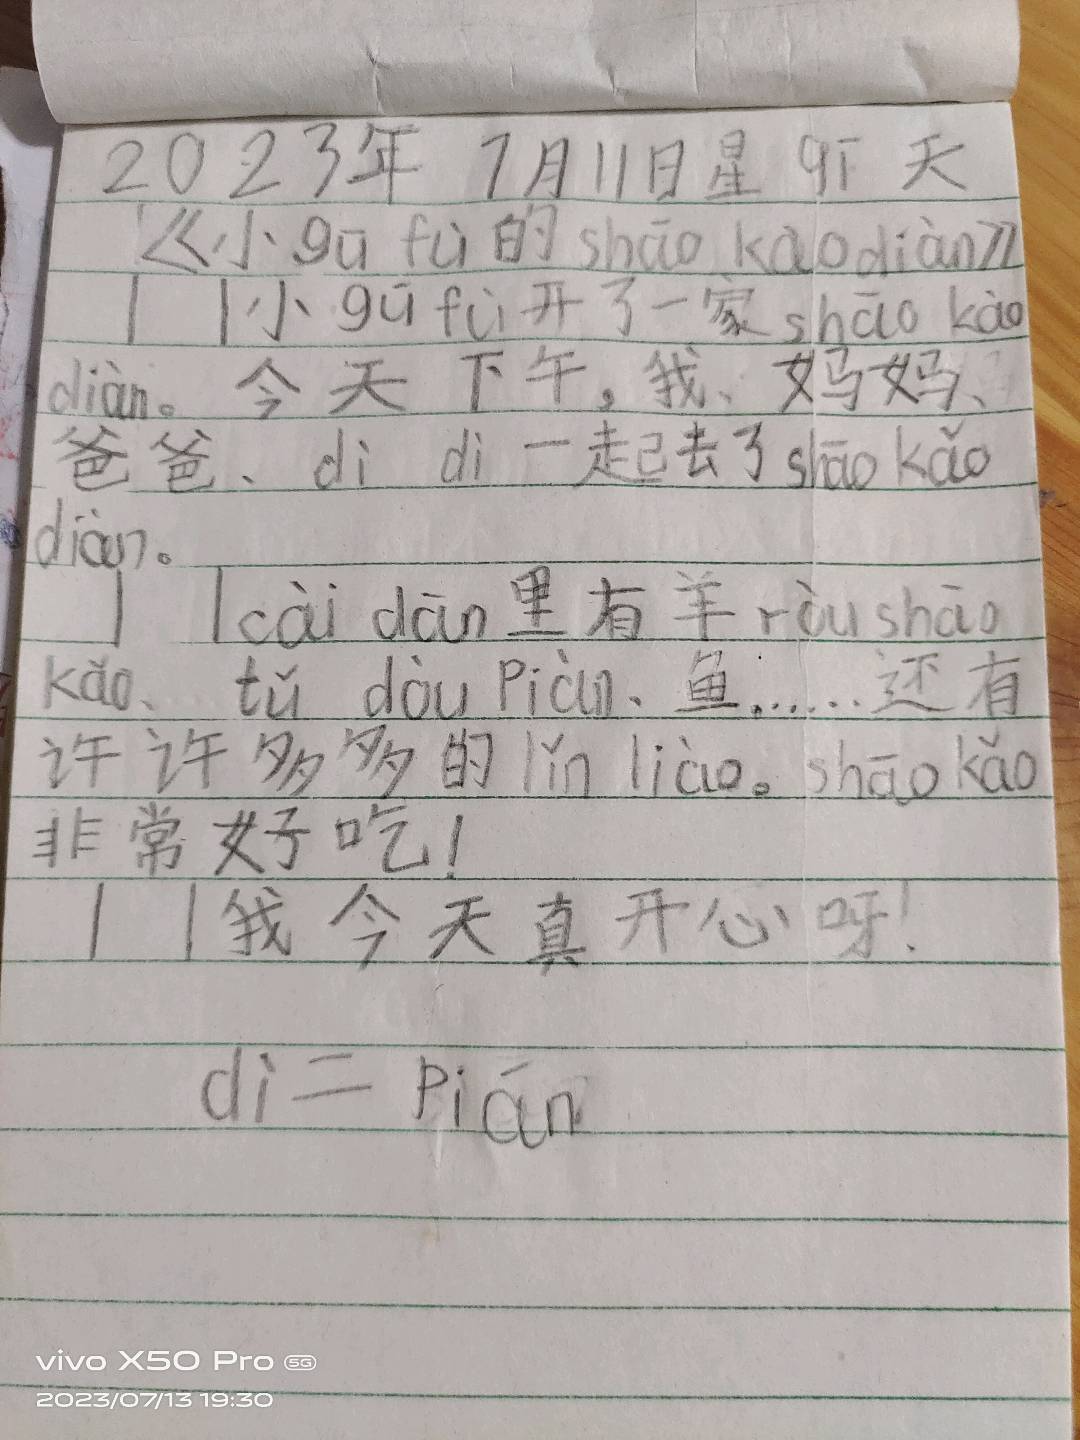 2023年 7月11日星 qī 天
《小gū fù的shāo kàodiàn》
小gū fù开了一家shāo kào
diàn。今天下午,我、妈妈、
爸爸、di di一起去了shāo kǎo
diàn。
cài dān里有羊ròu shāo
kǎo、tǔ dòu Piàn、鱼……还有
许许多多的lǐn liào。shāo kǎo
非常好吃!
我今天真开心呀!
dì二Piān
vivo X50 Pro 5G
2023/07/13 19:30